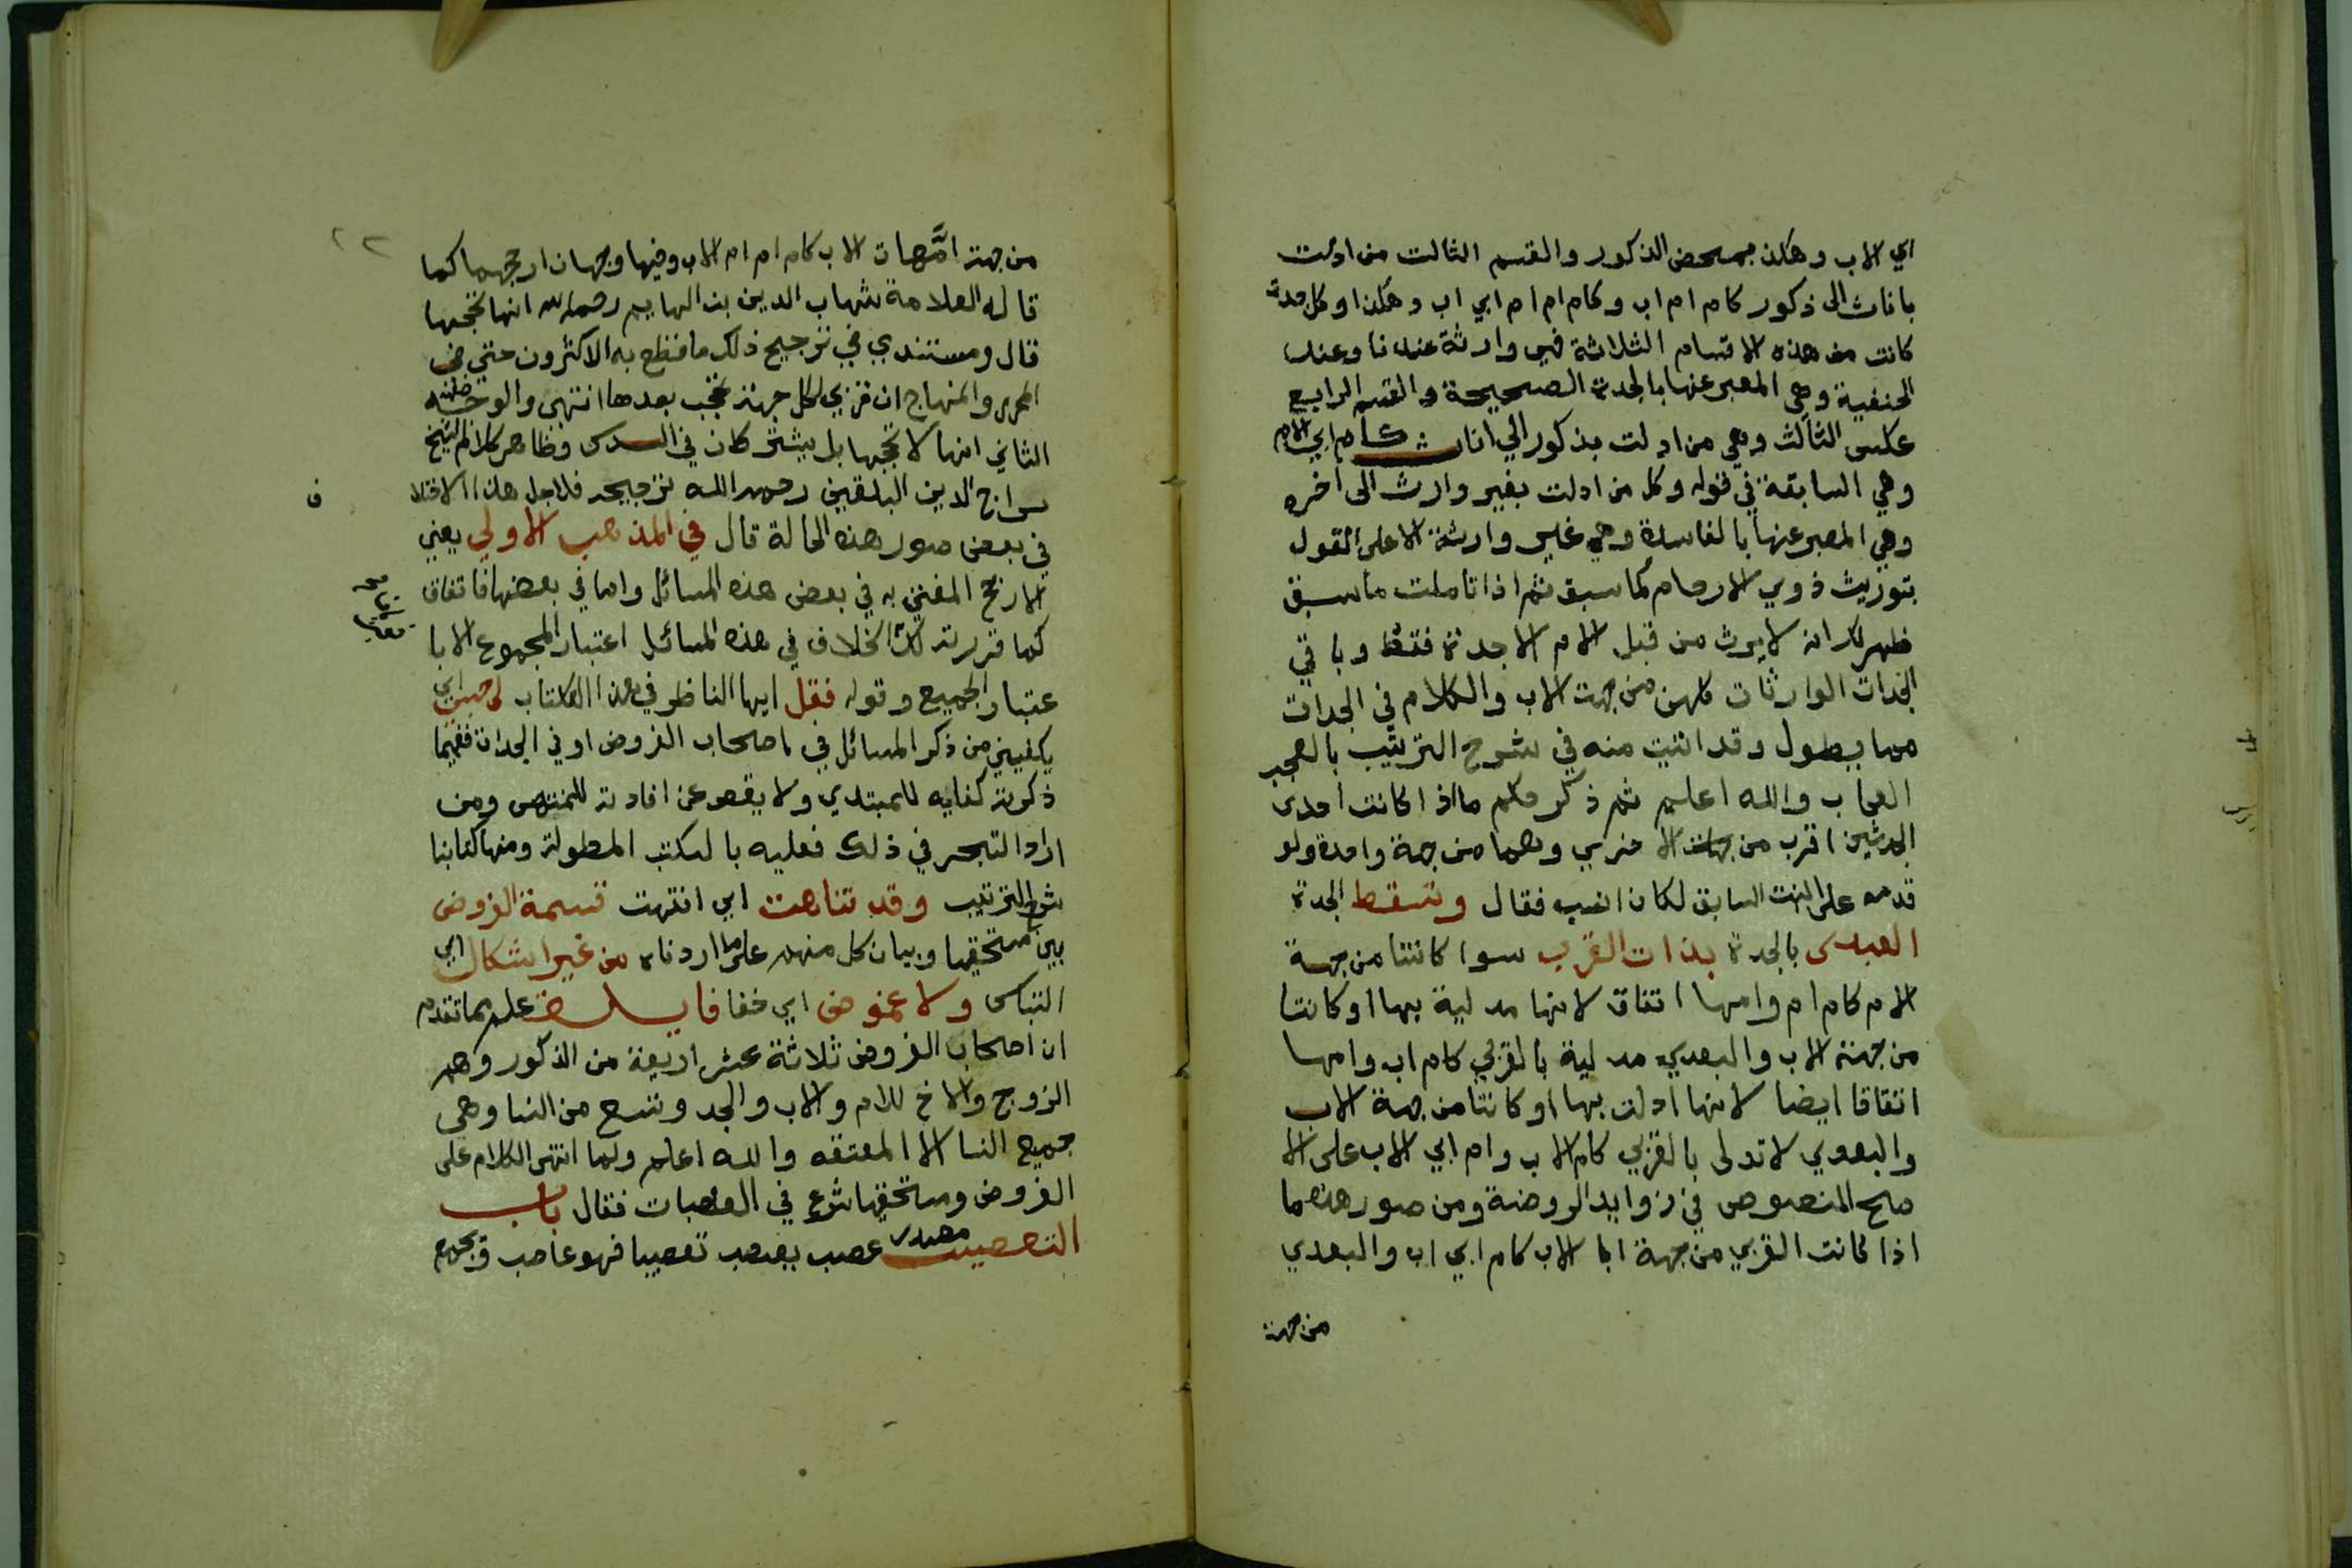 ابي الاب وهكذ بمحض الذكور والقسم الثالث من ادلت
باناث الى ذكور كام ام اب وكام ام ام ابي اب وهكذا وكل جدة
كانت من هذه الاقسام الثلاثة فهي وارثة عندنا وعند
الحنفية وهي المعبر عنها بالجدة الصحيحة والقسم الرابع
عكس الثالث وهي من ادلت بذكور الي اناث كام ابي الام
وهي السابقة في قوله وكل من ادلت بغير وارث الى اخره
وهي المعبر عنها بالفاسدة وهي غير وارثة الا على القول
بتوريث ذوي الارحام كما سبق ثم اذا تاملت ما سبق
ظهر لك انه لا يرث من قبل الام الا جدة فقط وباقي
الجدات الوارثات كلهن من جهت الاب والكلام في الجدات
مما يطول وقد اتيت منه في شرح الترتيب بالعجب
العجاب والله اعلم ثم ذكر حكم ما اذا كانت احدى
الجدتين اقرب من الاخري وهما من جهة واحدة ولو
قدمه على البيت السابق لكان انسب فقال وتسقط الجدة
البعدى بالجدة بذات القرب سوا كانتا من جهة
الام كام ام وامها اتفاق لانها مدلية بها او كانتا
من جهة الاب والبعدي مدلية بالقربي كام اب وامها
اتفاقا ايضا لانها ادلت بها او كانتا من جهة الاب
والبعدي لا تدلى بالقربي كام الاب وام ابي الاب على الا
صح المنصوص في زوايد الروضة ومن صور هذه ما
اذا كانت القربي من جهة ابا الاب كام ابي اب والبعدي
من جهة
٢٢
من جهة امَّهات الاب كام ام ام الاب وفيها وجهان ارجحهما كما
قاله العلامة شهاب الدين بن الهايم رحمه الله انها تحجبها
قال ومستندي في ترجيح ذلك ما قطع به الاكثرون حتي في
المحرر والمنهاج ان قربي كل جهة تحجب بعدها انتهى والوجه
الثاني انها لا تحجبها بل يشتركان في السدس وظاهر كلام الشيخ
سراج الدين البلقيني رحمه الله ترجيحه فلاجل هذا الاختلا
ف
في بعض صور هذه الحالة قال في المذهب الاولي يعني
الارجح المفتي به في بعض هذه المسائل واما في بعضها فاتفاق
كما قررته لك الخلاف في هذه المسائل اعتبار المجموع الا با
عتبار الجميع وقوله فقل ايها الناظر في هذا الكتاب لي حسبي اي
يكفيني من ذكر المسائل في اصحاب الفروض او في الجدات ففيما
ذكرته كفايه للمبتدي ولا يقصر عن افادته للمنتهى ومن
اراد التبحر في ذلك فعليه بالكتب المطولة ومنها كتابنا
شرح الترتيب وقد تناهت اي انتهت قسمة الفروض
بين مستحقيها وبيان كل منهم على ما اردناه من غير اشكال اي
التباس ولا غموض اي خفا فايـــدة علم مما تقدم
ان اصحاب الفروض ثلاثة عشر اربعة من الذكور وهم
الزوج والاخ للام والاب والجد وتسع من النسا وهي
جميع النسا الا المعتقه والله اعلم ولما انتهى الكلام على
الفروض ومستحقيها شرع في العصبات فقال باب
التعصيب مصدر عصب يعصب تعصيبا فهو عاصب ويجمع